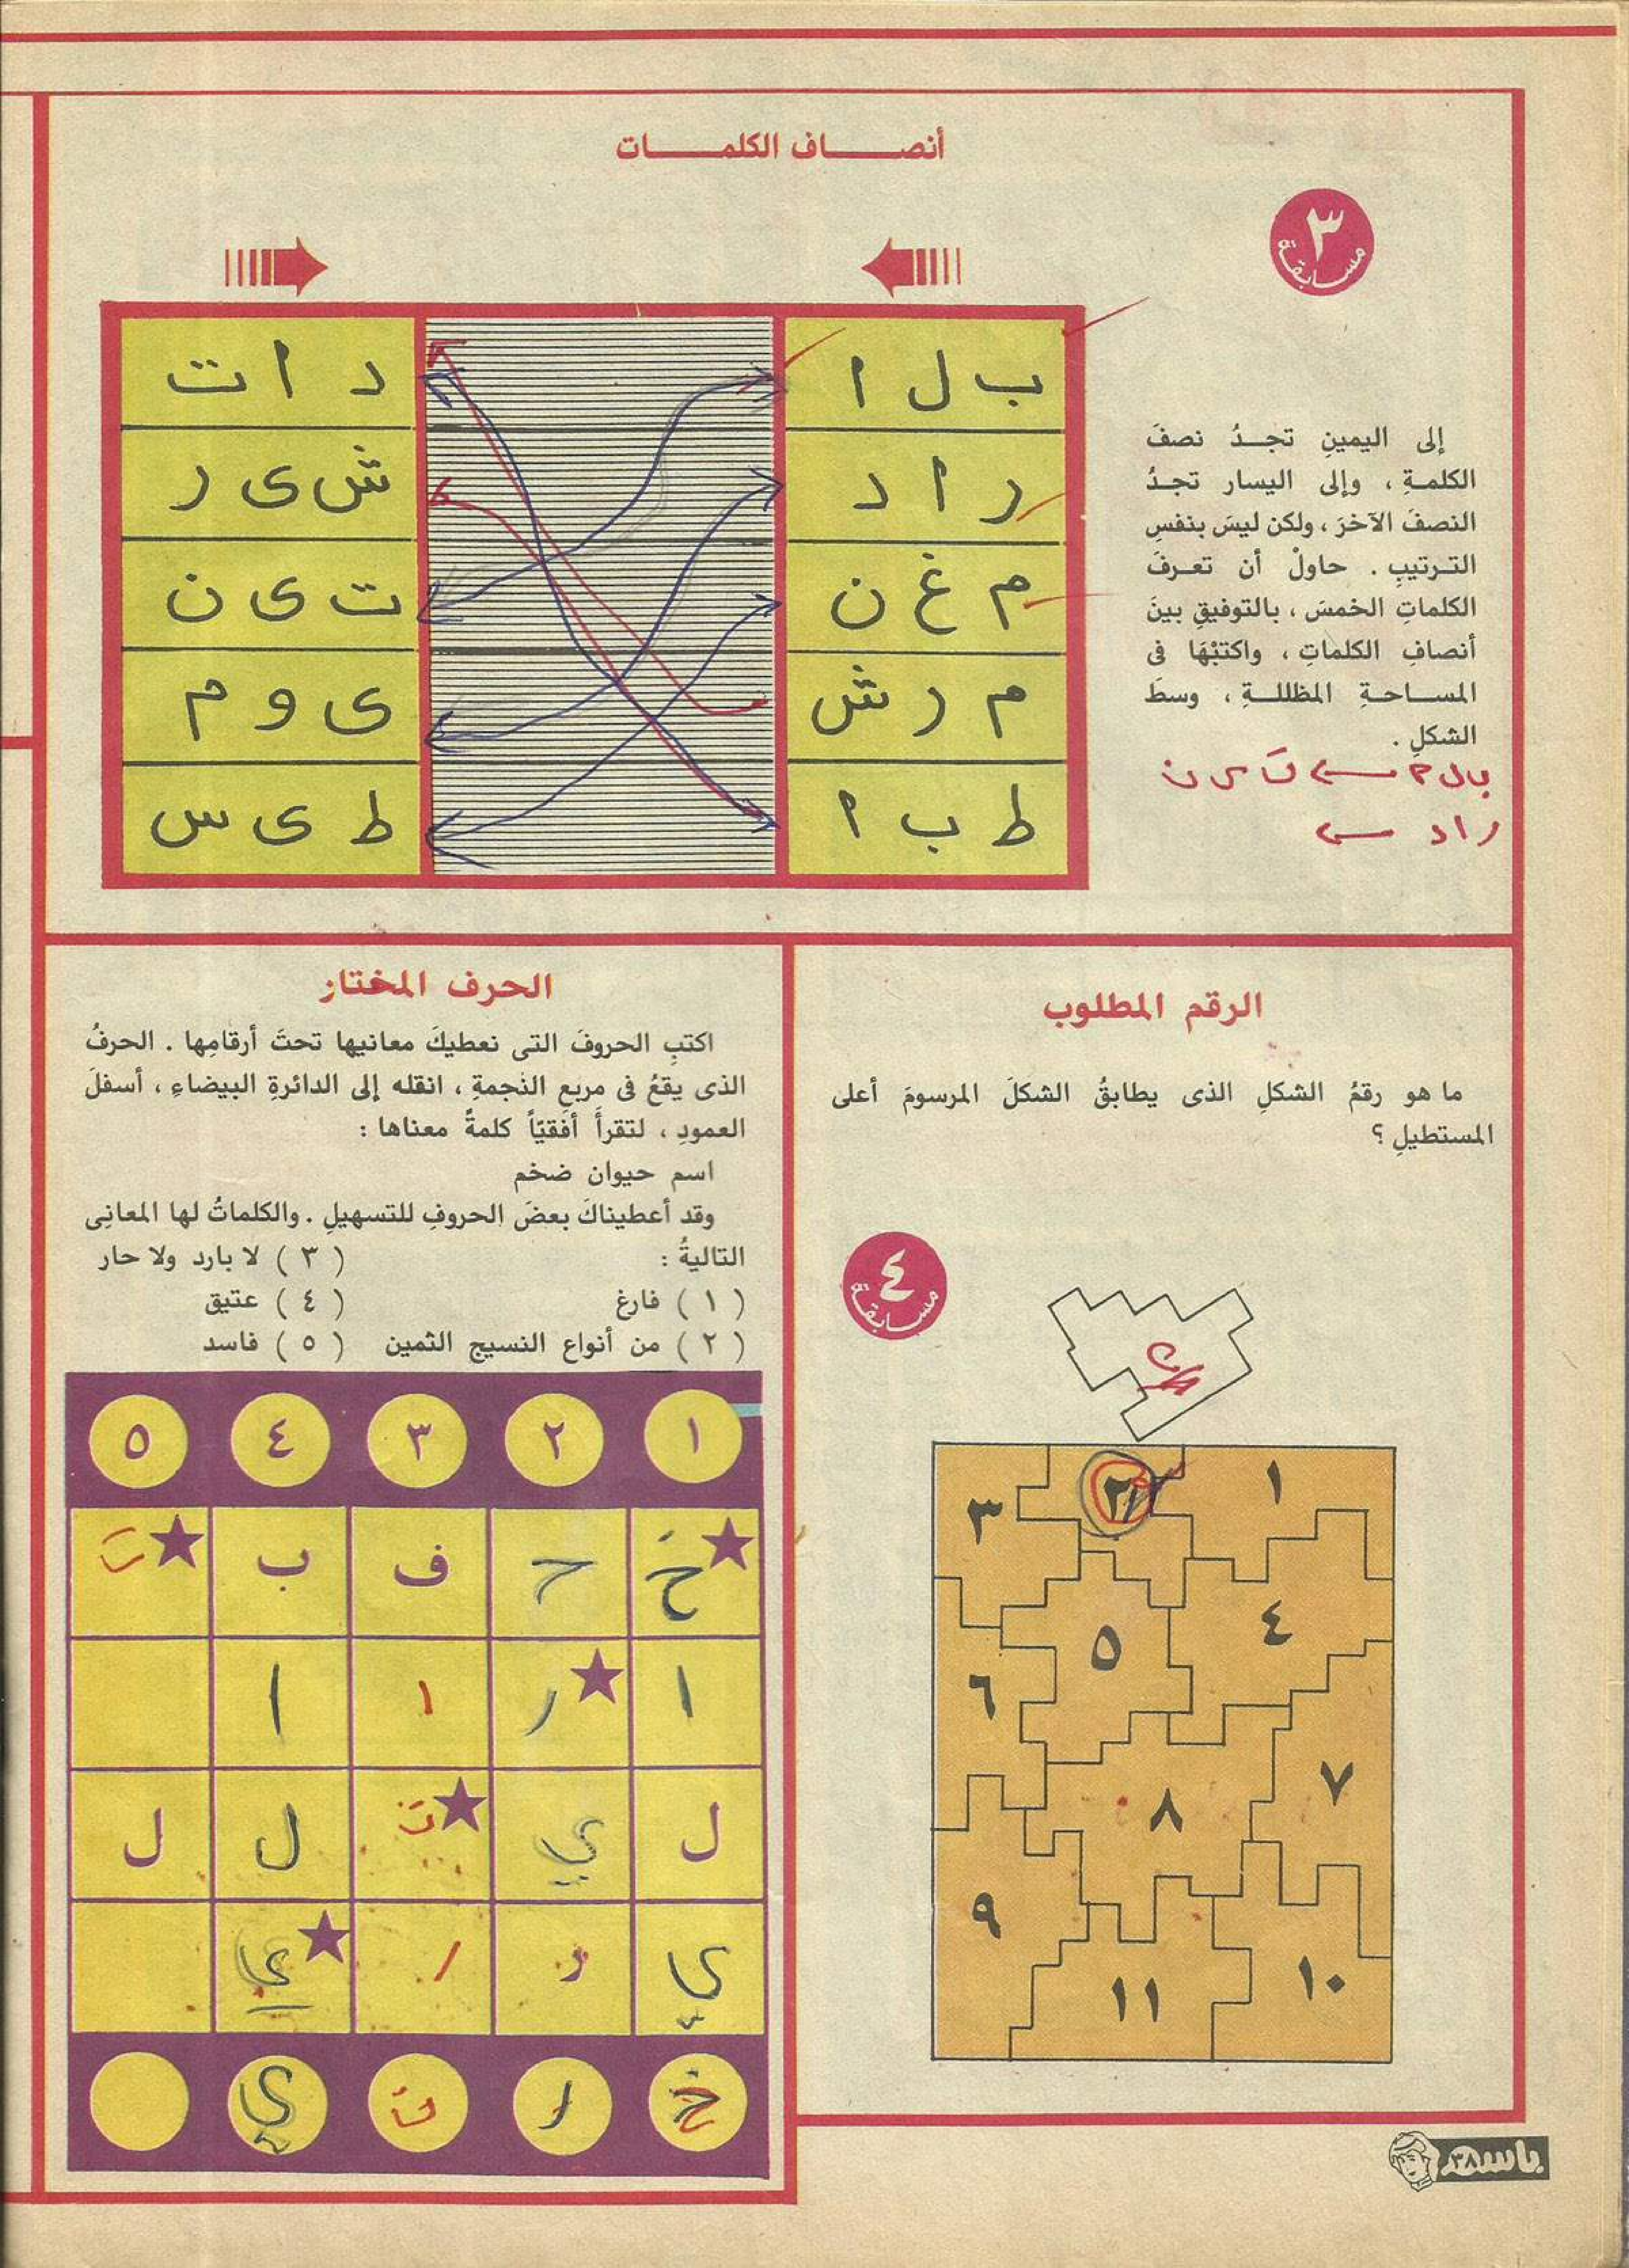 أنصاف الكلمات
٣
مسابقة
إلى اليمينِ تجدُ نصفَ
الكلمةِ ، وإلى اليسار تجدُ
النصفَ الآخرَ ، ولكن ليسَ بنفسِ
الترتيبِ . حاولْ أن تعرفَ
الكلماتِ الخمسَ ، بالتوفيقِ بينَ
أنصافِ الكلماتِ ، واكتبْهَا فى
المساحةِ المظللةِ ، وسطَ
الشكلِ .
راد
ب ل ا
د ا ت
ر ا د
ش ى ر
م غ ن
ت ى ن
م ر ش
ى و م
ط ب ا
ط ى س
الرقم المطلوب
ما هو رقمُ الشكلِ الذى يطابقُ الشكلَ المرسومَ أعلى
المستطيلِ ؟
٤
مسابقة
١
٢
٣
٤
٥
٦
٧
٨
٩
١٠
١١
الحرف المختار
اكتبِ الحروفَ التى نعطيكَ معانيها تحتَ أرقامِها . الحرفُ
الذى يقعُ فى مربعِ النجمةِ ، انقله إلى الدائرةِ البيضاءِ ، أسفلَ
العمودِ ، لتقرأَ أفقيّاً كلمةً معناها :
اسم حيوان ضخم
وقد أعطيناكَ بعضَ الحروفِ للتسهيلِ . والكلماتُ لها المعانِى
التاليةُ :
( ١ ) فارغ
( ٢ ) من أنواع النسيج الثمين
( ٣ ) لا بارد ولا حار
( ٤ ) عتيق
( ٥ ) فاسد
١ ٢ ٣ ٤ ٥
خ ح ف ب ت
ا ر ا ا
ل ي ت ل ل
ي ر ر ي
خ ر ت ي
باسم
٣٨